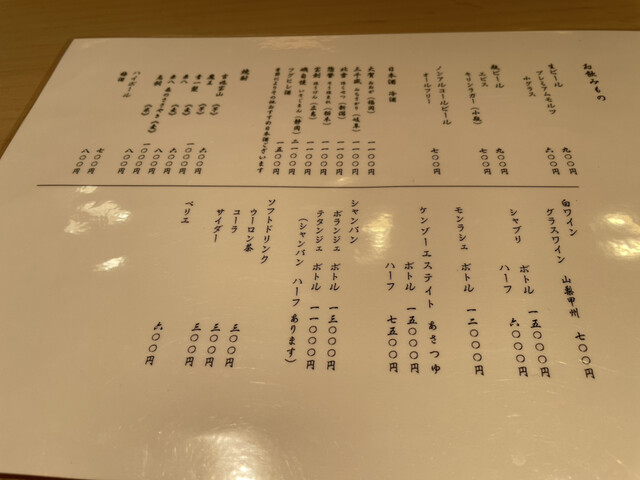 お飲みもの
生ビール
プレミアムモルツ 九〇〇円
小グラス 六〇〇円
瓶ビール
エビス 九〇〇円
キリンラガー(小瓶) 七〇〇円
ノンアルコールビール
オールフリー 七〇〇円
日本酒 冷酒
大賀 おおが (福岡) 一一〇〇円
三千盛 みちさかり (岐阜) 一一〇〇円
(新潟) 一一〇〇円
(栃木) 一一〇〇円
(広島) 一一〇〇円
磯自慢 いそじまん (静岡) 二一〇〇円
フグヒレ酒 一五〇〇円
季節によりその他おすすめ日本酒ございます
焼酎
六〇〇円
一〇〇〇円
八〇〇円
八〇〇円
一〇〇〇円
ハイボール 八〇〇円
梅酒 七〇〇円
八〇〇円
白ワイン
グラスワイン 山梨甲州 七〇〇円
シャブリ ボトル 一五〇〇〇円
ハーフ 六〇〇〇円
モンラシェ ボトル 一二〇〇〇円
ケンゾーエステイト あさつゆ
ボトル 一五〇〇〇円
ハーフ 七五〇〇円
シャンパン
ボランジェ ボトル 一三〇〇〇円
テタンジェ ボトル 一一〇〇〇円
(シャンパン ハーフあります)
ソフトドリンク
ウーロン茶 三〇〇円
コーラ 三〇〇円
サイダー 三〇〇円
ペリエ 六〇〇円